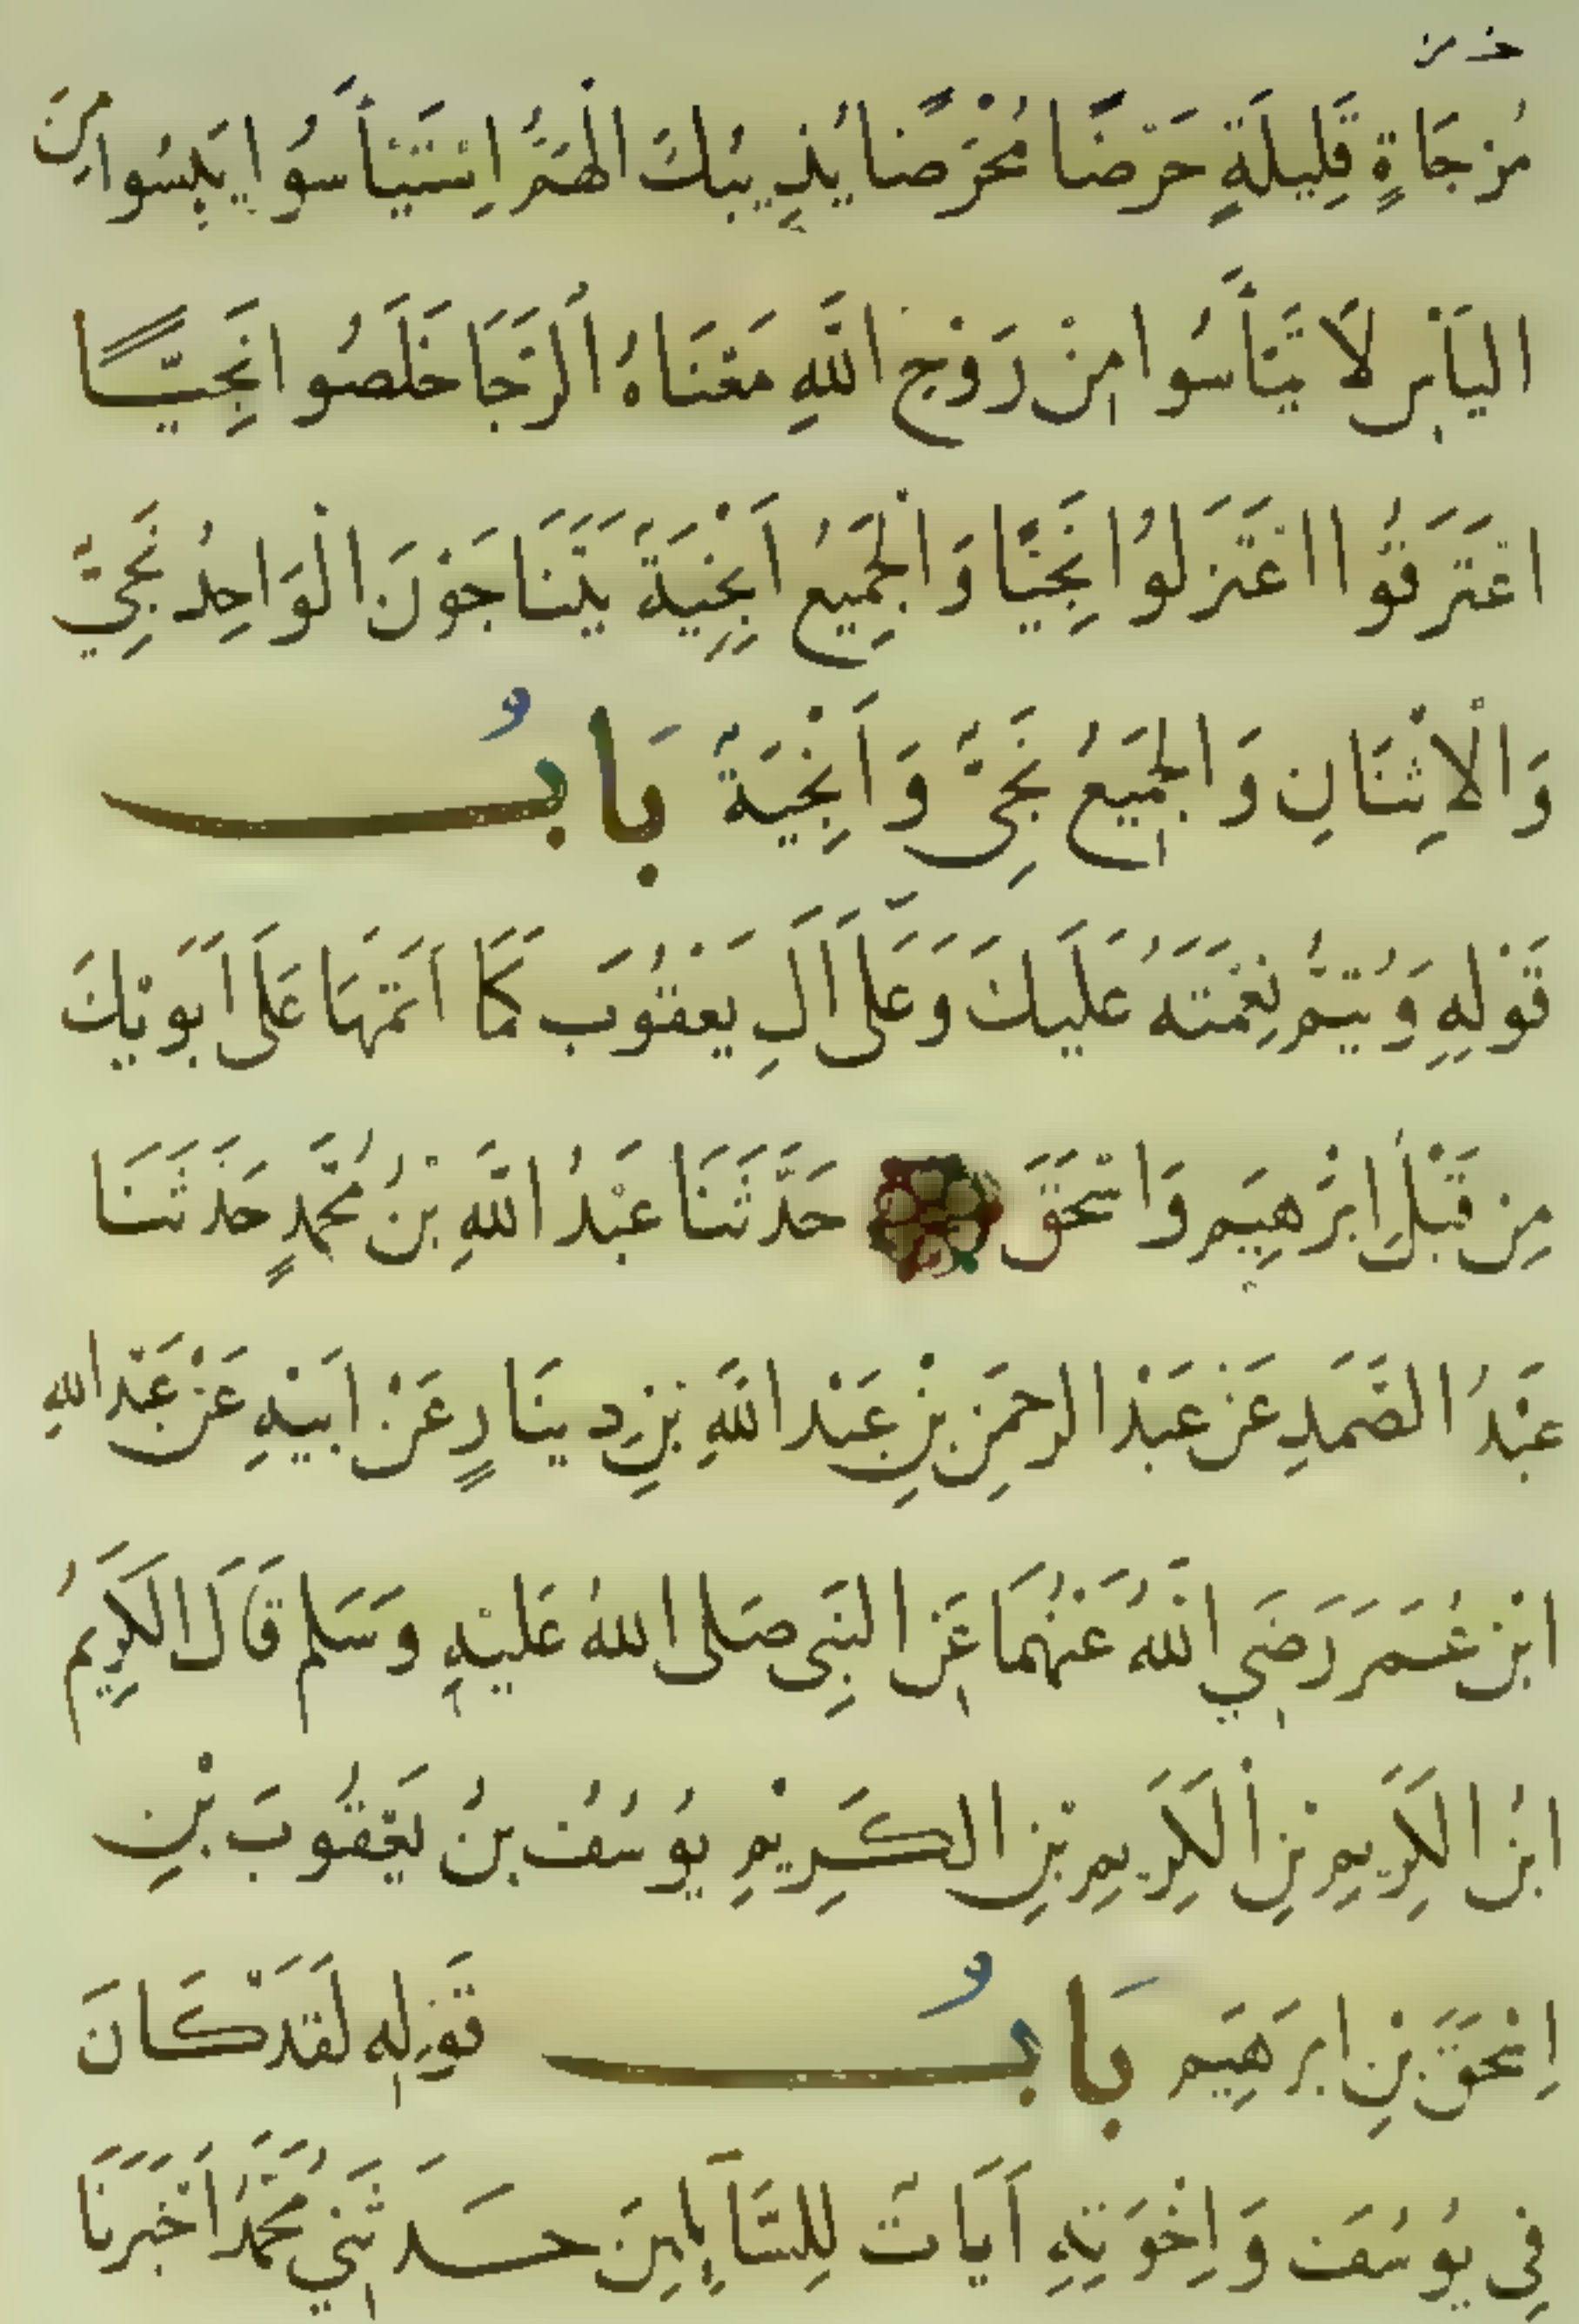 مُزْجَاةٍ قَلِيلَةٍ حَرَضًا مُحْرَضًا يُذِيبُكَ الْهَمُّ اِسْتَيْأَسُوا يَئِسُوا مِنَ
اليَأسِ لَا تَيْأَسُوا مِنْ رَوْحِ اللَّهِ مَعْنَاهُ الرَّجَا خَلَصُوا نَجِيًّا
اعْتَرَفُوا اعْتَزَلُوا نَجِيًّا وَالْجَمِيعُ أَنْجِيَةٌ يَتَنَاجَوْنَ الْوَاحِدُ نَجِيٌّ
وَالْاِثْنَانِ وَالْجَمِيعُ نَجِيٌّ وَأَنْجِيَةٌ بَابُ
قَوْلِهِ وَيُتِمُّ نِعْمَتَهُ عَلَيكَ وَعَلَى آلِ يَعْقُوبَ كَمَا اَتَمَّهَا عَلَى اَبَوَيْكَ
مِن قَبْلُ اِبْرَهِيمَ وَاسْحَقَ حَدَّثَنَا عَبْدُ اللَّهِ بْنُ مُحَمَّدٍ حَدَّثَنَا
عَبْدُ الصَّمَدِ عَنْ عَبْدِ الرحمَنِ بْنِ عَبْدِ اللَّهِ بْنِ دِينَارٍ عَنْ اَبِيْهِ عَنْ عَبْدِ اللهِ
ابْنِ عُمَرَ رَضِيَ اللَّهُ عَنْهُمَا عَنِ النَّبِي صَلى اللهُ عَلَيْهِ وَسَلم قَالَ الكَرِيمُ
ابْنُ الكَرِيمِ بْنِ الكَرِيمِ بْنِ الكَرِيْمِ يُوسُفُ بنُ يَعْقُوبَ بْنِ
اِسْحَقَ بْنِ ابرَهِيَم بَابُ قَوْلِهِ لَقَدْ كَانَ
فِي يُوسُفَ وَاِخْوَتِهِ آيَاتٌ لِلسَّآئِلِينَ حَدَّثَنِي مُحَمَّدٌ اَخْبَرَنَا